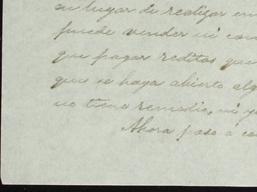 su lugar de realizar en
puede vender ni com
que pagar reditos que
que se haya abierto alg
no tiene remedio, ni y
Ahora paso a co